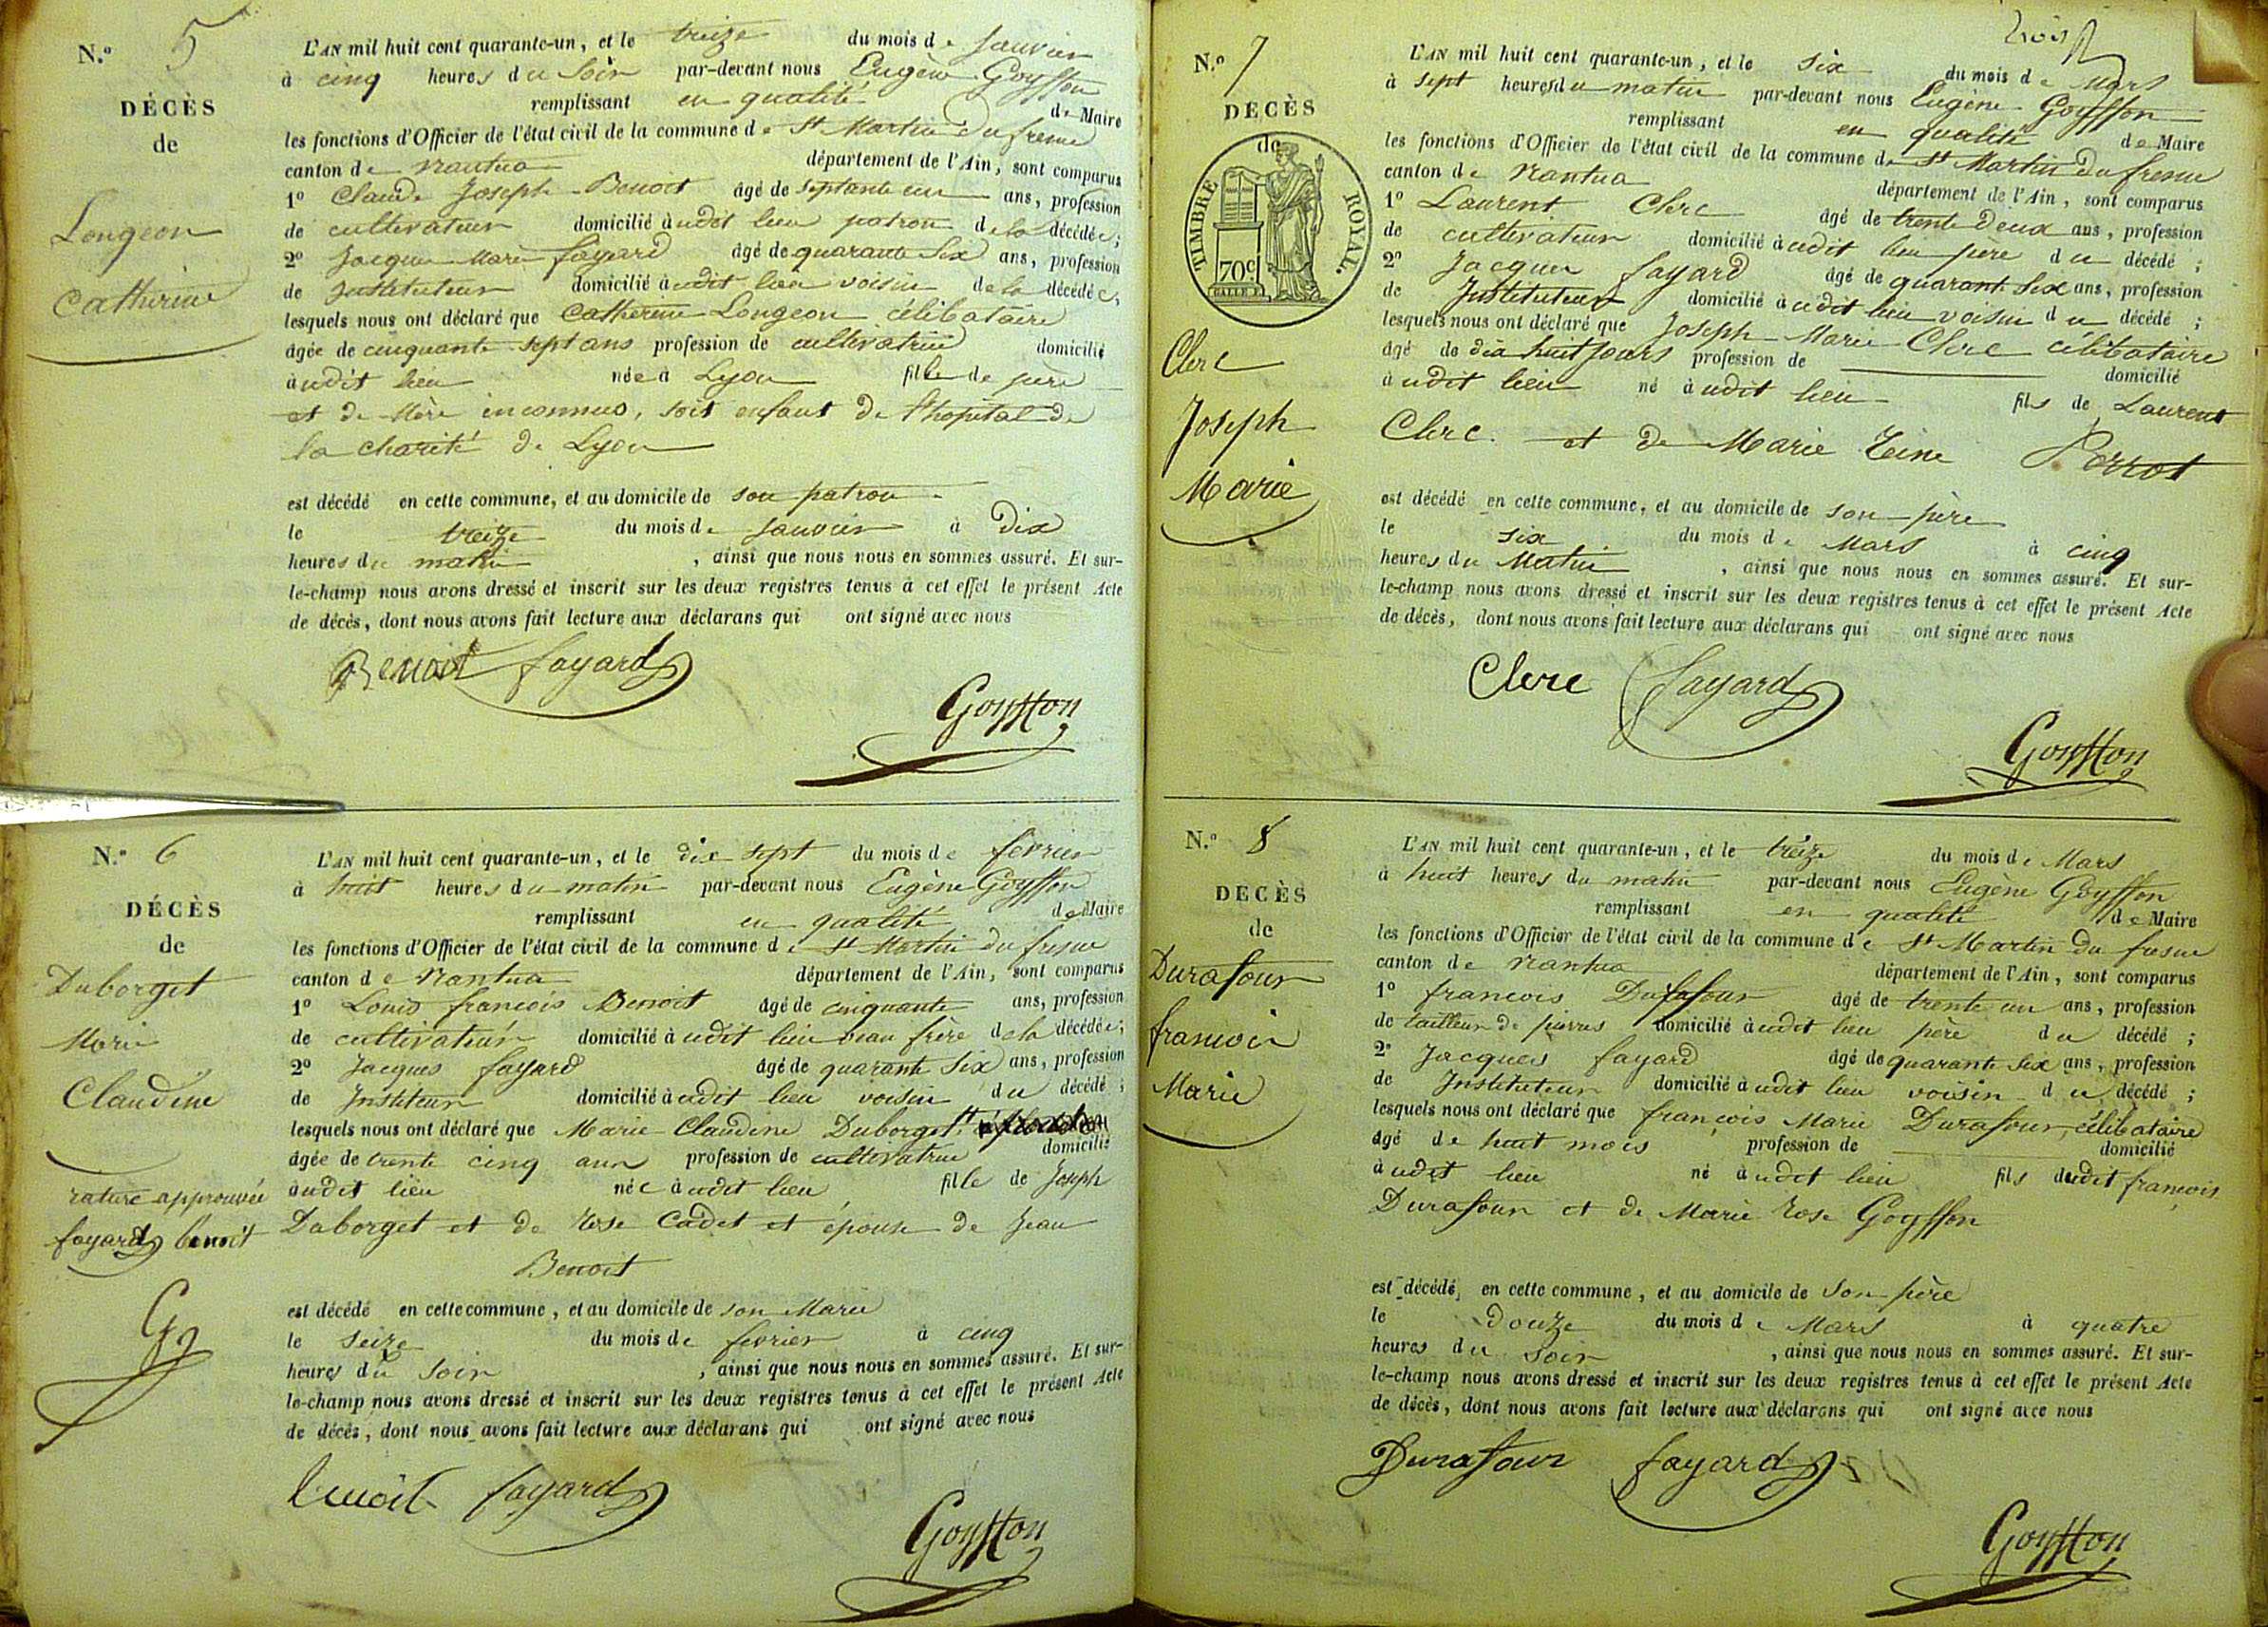 N.º 5
DÉCÈS
de
Longeon
Catherine
L'AN mil huit cent quarante-un, et le treize du mois de Janvier
à cinq heures du Soir par-devant nous Eugène Goyffon
remplissant en qualité de Maire
les fonctions d'Officier de l'état civil de la commune de St Martin du fresne
canton de Nantua département de l'Ain, sont comparus
1º Claude Joseph Benoit âgé de septante un ans, profession
de cultivateur domicilié à udit lieu patron de la décédée;
2º Jacques Marie fayard âgé de quarante Six ans, profession
de Instituteur domicilié à udit lieu voisin de la décédée;
lesquels nous ont déclaré que Catherine Longeon célibataire
âgée de cinquante-sept ans profession de cultivatrice domicilié
à udit lieu née à Lyon fille de père
et de Mère inconnus, soit enfant de l'hopital de
la charité de Lyon
est décédé en cette commune, et au domicile de son patron
le treize du mois de Janvier à Dix
heures du matin, ainsi que nous nous en sommes assuré. Et sur-
le-champ nous avons dressé et inscrit sur les deux registres tenus à cet effet le présent Acte
de décès, dont nous avons fait lecture aux déclarans qui ont signé avec nous
Benoit fayard
Goyffon
N.º 6
DÉCÈS
de
Duborget
Marie
Claudine
rature approuvée
fayard benoit
G
L'AN mil huit cent quarante-un, et le dix sept du mois de février
à huit heures du matin par-devant nous Eugène Goyffon
remplissant en qualité de Maire
les fonctions d'Officier de l'état civil de la commune de St Martin du fresne
canton de Nantua département de l'Ain, sont comparus
1º Louis françois Benoit âgé de cinquante ans, profession
de cultivateur domicilié à udit lieu beau frère de la décédée;
2º Jacques fayard âgé de quarante Six ans, profession
de Institeur domicilié à udit lieu voisin du décédé;
lesquels nous ont déclaré que Marie Claudine Duborget
âgée de trente cinq ans profession de cultivatrice domicilié
à udit lieu née à udit lieu fille de Joseph
Duborget et de Rose Cadet et épouse de Jean
Benoit
est décédé en cette commune, et au domicile de son Marie
le seize du mois de février à cinq
heures du soir, ainsi que nous nous en sommes assuré. Et sur-
le-champ nous avons dressé et inscrit sur les deux registres tenus à cet effet le présent Acte
de décès, dont nous avons fait lecture aux déclarans qui ont signé avec nous
benoit fayard
Goyffon
trois
N.º 7
DECÈS
de
TIMBRE ROYAL.
70c
Clerc
Joseph
Marie
L'AN mil huit cent quarante-un, et le six du mois de Mars
à sept heures du matin par-devant nous Eugène Goyffon
remplissant en qualité de Maire
les fonctions d'Officier de l'état civil de la commune de St Martin du fresne
canton de Nantua département de l'Ain, sont comparus
1º Laurent Clerc âgé de trente Deux ans, profession
de cultivateur domicilié à udit lieu père du décédé;
2º Jacques fayard âgé de quarante Six ans, profession
de Instituteur domicilié à udit lieu voisin du décédé;
lesquels nous ont déclaré que Joseph-Marie Clerc célibataire
âgé de dix huit jours profession de domicilié
à udit lieu né à udit lieu fils de Laurent
Clerc et de Marie Reine Perrot
est décédé en cette commune, et au domicile de son père
le six du mois de Mars à cinq
heures du Matin, ainsi que nous nous en sommes assuré. Et sur-
le-champ nous avons dressé et inscrit sur les deux registres tenus à cet effet le présent Acte
de décès, dont nous avons fait lecture aux déclarans qui ont signé avec nous
Clerc fayard
Goyffon
N.º 8
DECÈS
de
Durafour
francois
Marie
L'AN mil huit cent quarante-un, et le treize du mois de Mars
à huit heures du matin par-devant nous Eugène Goyffon
remplissant en qualité de Maire
les fonctions d'Officier de l'état civil de la commune de St Martin du fresne
canton de Nantua département de l'Ain, sont comparus
1º francois Dufafour âgé de trente un ans, profession
de tailleur de pierres domicilié à udit lieu père du décédé;
2º Jacques fayard âgé de quarante Six ans, profession
de Instituteur domicilié à udit lieu voisin du décédé;
lesquels nous ont déclaré que françois Marie Durafour, célibataire
âgé de huit mois profession de domicilié
à udit lieu né à udit lieu fils dudit françois
Durafour et de Marie Rose Goyffon
est décédé, en cette commune, et au domicile de Son père
le Douze du mois de Mars à quatre
heures du soir, ainsi que nous nous en sommes assuré. Et sur-
le-champ nous avons dressé et inscrit sur les deux registres tenus à cet effet le présent Acte
de décès, dont nous avons fait lecture aux déclarans qui ont signé avec nous
Durafour fayard
Goyffon